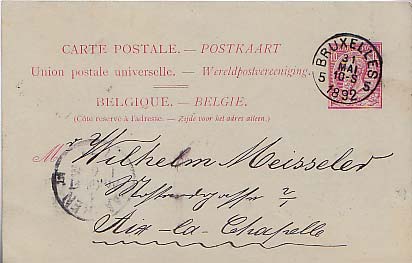 CARTE POSTALE. — POSTKAART
Union postale universelle. — Wereldpostvereeniging.
BELGIQUE. — BELGIE.
(Côté réservé à l'adresse. — Zijde voor het adres alleen.)
BRUXELLES
31
MAI
10-S
5 5
1892
M r Wilhelm Meisseler
2/1
Aix-la-Chapelle